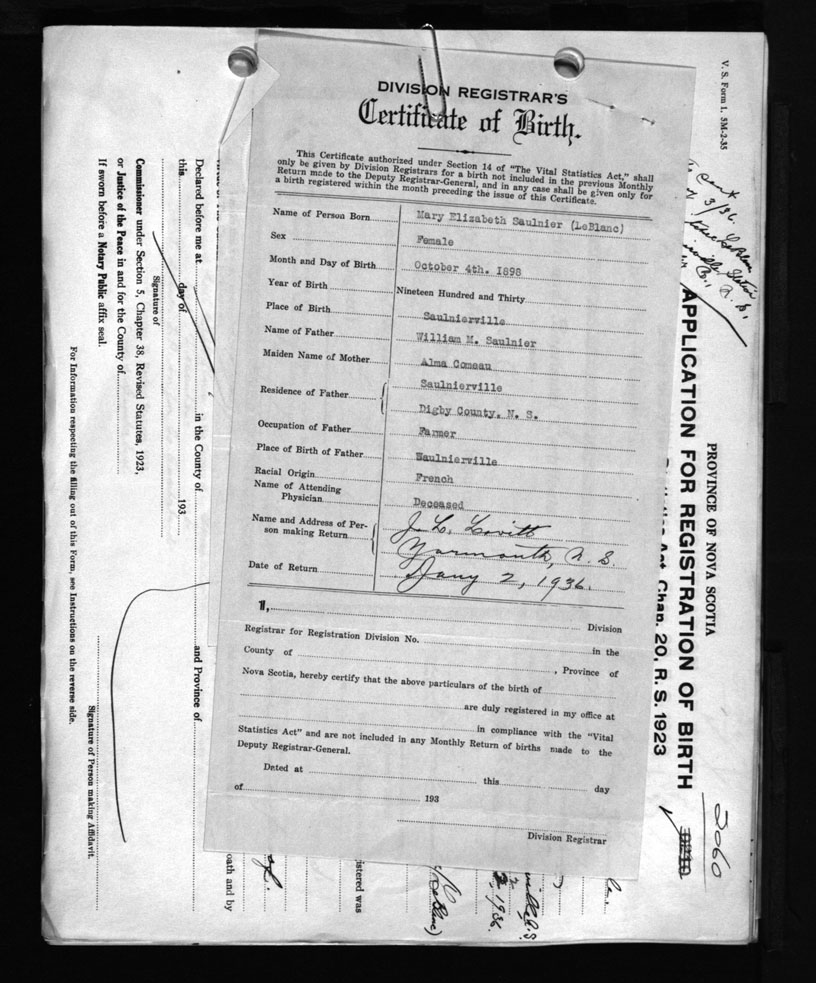 DIVISION REGISTRAR'S
Certificate of Birth.
This Certificate authorized under Section 14 of "The Vital Statistics Act," shall
only be given by Division Registrars for a birth not included in the previous Monthly
Return made to the Deputy Registrar-General, and in any case shall be given only for
a birth registered within the month preceding the issue of this Certificate.
Name of Person Born Mary Elizabeth Saulnier (LeBlanc)
Sex Female
Month and Day of Birth October 4th. 1898
Year of Birth Nineteen Hundred and Thirty
Place of Birth Saulnierville
Name of Father William M. Saulnier
Maiden Name of Mother Alma Comeau
Residence of Father Saulnierville
Digby County. N. S.
Occupation of Father Farmer
Place of Birth of Father Saulnierville
Racial Origin French
Name of Attending
Physician Deceased
Name and Address of Per-
son making Return J. L. Lovitt
Yarmouth, N. S.
Date of Return Jany 2, 1936.
I, Division
Registrar for Registration Division No. in the
County of , Province of
Nova Scotia, hereby certify that the above particulars of the birth of
are duly registered in my office at
in compliance with the "Vital
Statistics Act" and are not included in any Monthly Return of births made to the
Deputy Registrar-General.
Dated at this day
of 193
Division Registrar
V. S. Form 1. 5M-2-35
PROVINCE OF NOVA SCOTIA
APPLICATION FOR REGISTRATION OF BIRTH
Act, Chap. 20, R. S. 1923
2060
3/36.
N. S.
1936.
istered was
oath and by
Declared before me at in the County of and Province of
this day of 193
Signature of
Commissioner under Section 5, Chapter 38, Revised Statutes, 1923,
or Justice of the Peace in and for the County of
If sworn before a Notary Public affix seal.
Signature of Person making Affidavit.
For Information respecting the filling out of this Form, see Instructions on the reverse side.